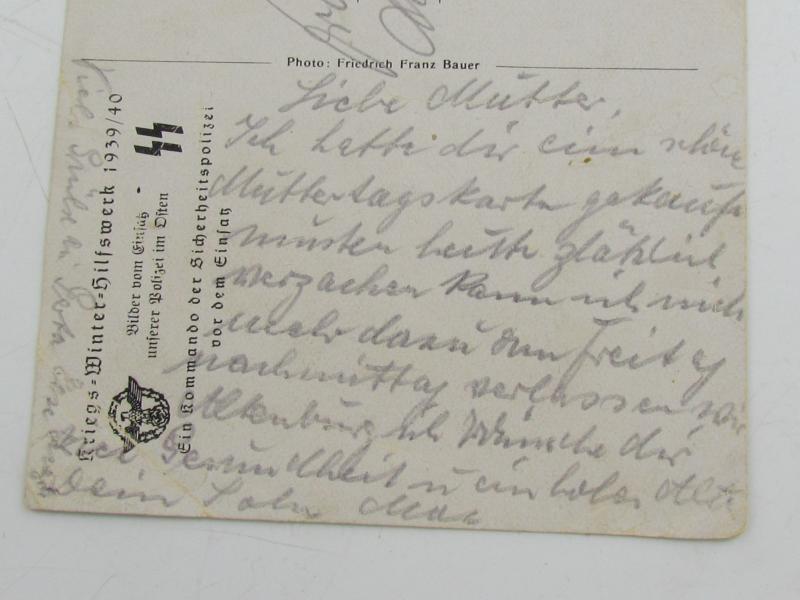 Photo: Friedrich Franz Bauer
Kriegs-Winter-Hilfswerk 1939/40
Bilder vom Einsatz
unserer Polizei im Osten
Ein Kommando der Sicherheitspolizei
vor dem Einsatz
Liebe Mutter,
Ich hatte dir eine schöne
Muttertagskarte gekauft
mussten heute plötzlich
kann ich nich
mehr dazu denn Freitag
nachmittag verlassen wir
Altenburg ich Wünsche dir
viel Gesundheit u ein hohes Alter
Dein Sohn Max
Viele Grüße